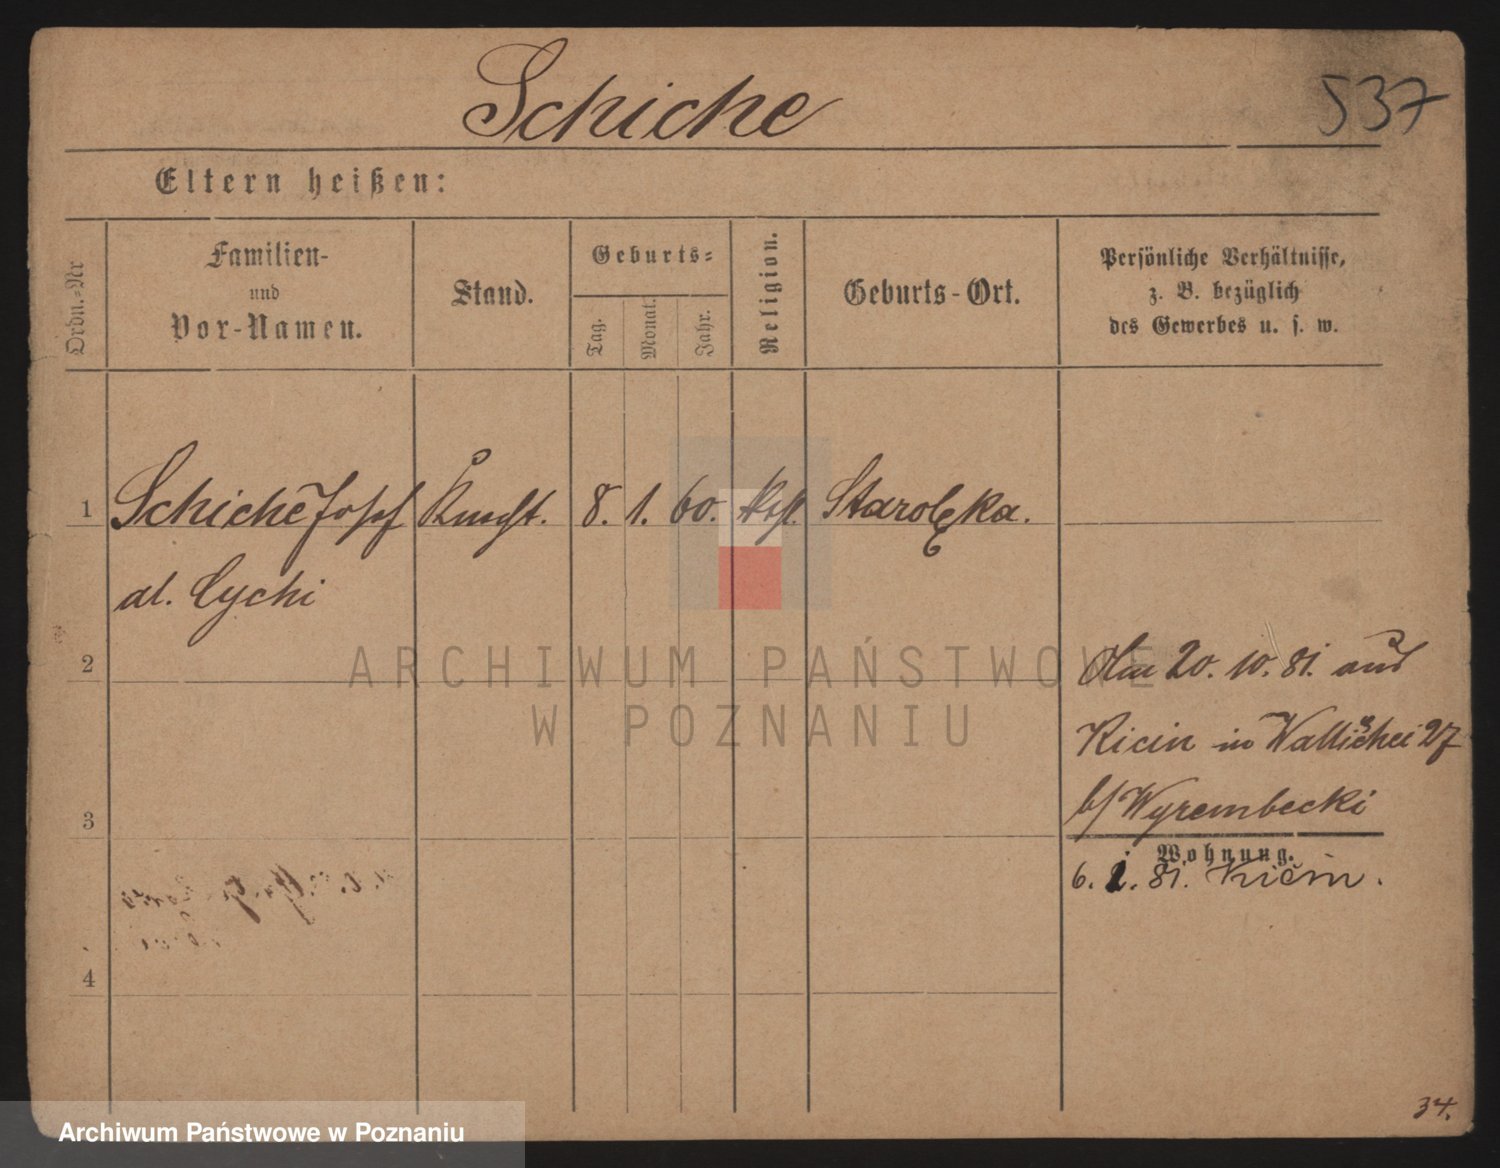 Schiche
537
Eltern heißen:
Ordn.=Nr
Familien-
und
Vor-Namen.
Stand.
Geburts=
Tag.
Monat.
Jahr.
Religion.
Geburts-Ort.
Persönliche Verhältnisse,
z. B. bezüglich
des Gewerbes u. s. w.
1 Schiche Josef Knecht. 8. 1. 60. kath. Starolęka.
al. Cychi
2
3
4
20. 10. 81. aus
Kicin in Wallischei 27
b/ Wyrembecki
Wohnung.
6. 81. Kicin.
34.
ARCHIWUM PAŃSTWOWE
W POZNANIU
Archiwum Państwowe w Poznaniu